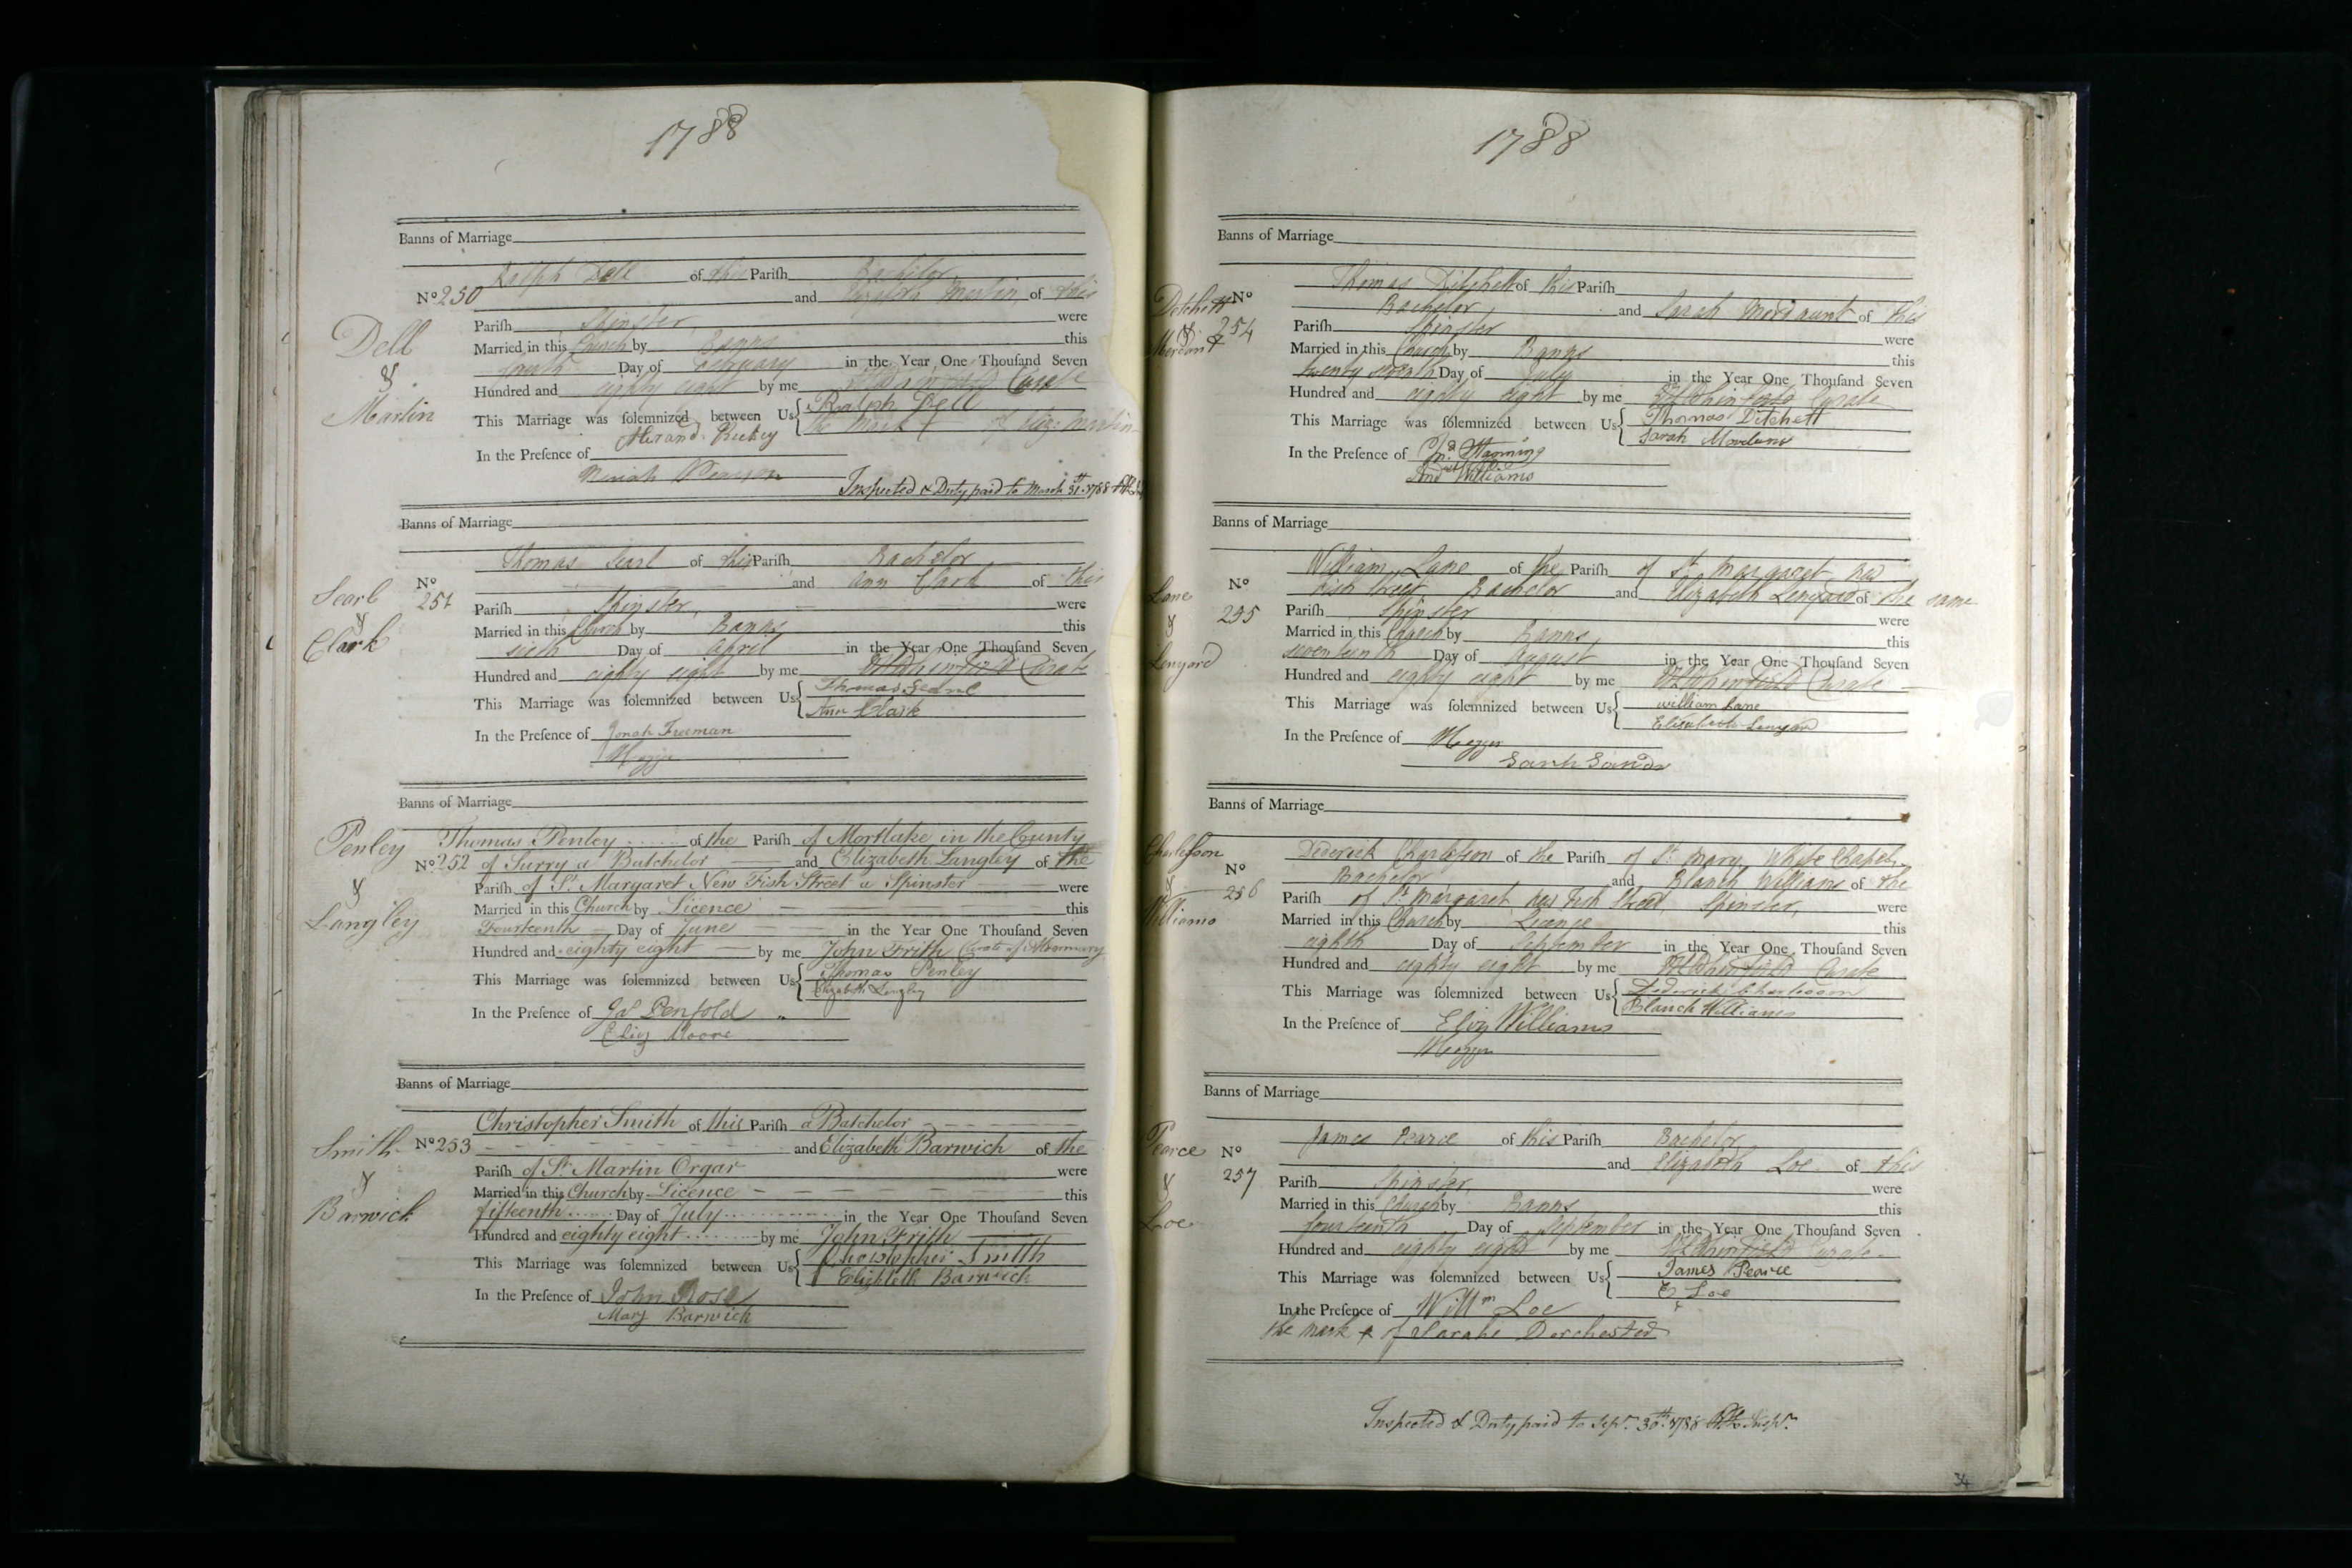 1788
Banns of Marriage
Ralph Dell of this Pariſh Bachelor
No 250 and Elizabeth Martin of this
Pariſh Spinster, were
Married in this Church by Banns this
Day of February in the Year One Thouſand Seven
Dell
&
Martin
Hundred and eighty eight by me Curate
This Marriage was ſolemnized between Us Ralph Dell
the mark + of Eliz: Martin
In the Preſence of
Inspected & Duty paid to March 31st 1788
Banns of Marriage
Thomas Searl of this Pariſh Bachelor
No 251 and Ann Clark of this
Searl
&
Clark
Pariſh Spinster, were
Married in this Church by Banns this
sixth Day of April in the Year One Thouſand Seven
Hundred and eighty eight by me Curate
This Marriage was ſolemnized between Us Thomas Searl
Ann Clark
In the Preſence of Jonah Freeman
Banns of Marriage
Penley
&
Langley
Thomas Penley of the Pariſh of Mortlake in the County
No 252 of Surry a Batchelor and Elizabeth Langley of the
Pariſh of St Margaret New Fish Street a Spinster were
Married in this Church by Licence this
Fourteenth Day of June in the Year One Thouſand Seven
Hundred and eighty eight by me John Frith Curate of
This Marriage was ſolemnized between Us Thomas Penley
Elizabeth Langley
In the Preſence of Jas Penfold
Eliz Moore
Banns of Marriage
Smith
&
Barwick
Christopher Smith of this Pariſh a Batchelor
No 253 and Elizabeth Barwick of the
Pariſh of St Martin Orgar were
Married in this Church by Licence this
fifteenth Day of July in the Year One Thouſand Seven
Hundred and eighty eight by me John Frith
This Marriage was ſolemnized between Us Christopher Smith
Elizbeth Barwick
In the Preſence of John Rose
Mary Barwick
1788
Banns of Marriage
Thomas Ditchett of this Pariſh
No 254 Bachelor and Sarah Mordaunt of this
Ditchett
&
Mordant
Pariſh Spinster were
Married in this Church by Banns this
twenty Day of July in the Year One Thouſand Seven
Hundred and eighty eight by me Curate
This Marriage was ſolemnized between Us Thomas Ditchett
Sarah
In the Preſence of
Williams
Banns of Marriage
William Lane of the Pariſh of St Margaret New
No 255 Fish Street Bachelor and Elizabeth Lenyard of the same
Lane
&
Lenyard
Pariſh Spinster were
Married in this Church by Banns, this
seventeenth Day of August in the Year One Thouſand Seven
Hundred and eighty eight by me Curate
This Marriage was ſolemnized between Us william Lane
Elizabeth Lenyard
In the Preſence of
Sarah Sands
Banns of Marriage
Charleson
&
Williams
Dederick Charleson of the Pariſh of St Mary, White Chapel,
No 256 Bachelor and Blanch Williams of the
Pariſh of St Margaret New Fish Street, Spinster, were
Married in this Church by Licence this
eighth Day of September in the Year One Thouſand Seven
Hundred and eighty eight by me Curate
This Marriage was ſolemnized between Us Dederick Charleson
Blanch Williams
In the Preſence of Eliz Williams
Banns of Marriage
Pearce
&
Loe
James Pearce of this Pariſh Bachelor
No 257 and Elizabeth Loe of this
Pariſh Spinster were
Married in this Church by Banns this
fourteenth Day of September in the Year One Thouſand Seven
Hundred and eighty eight by me Curate
This Marriage was ſolemnized between Us James Pearce
E Loe
In the Preſence of Willm Loe
the mark + of Sarah Dorchester
Inspected & Duty paid to Sepr 30th 1788
34